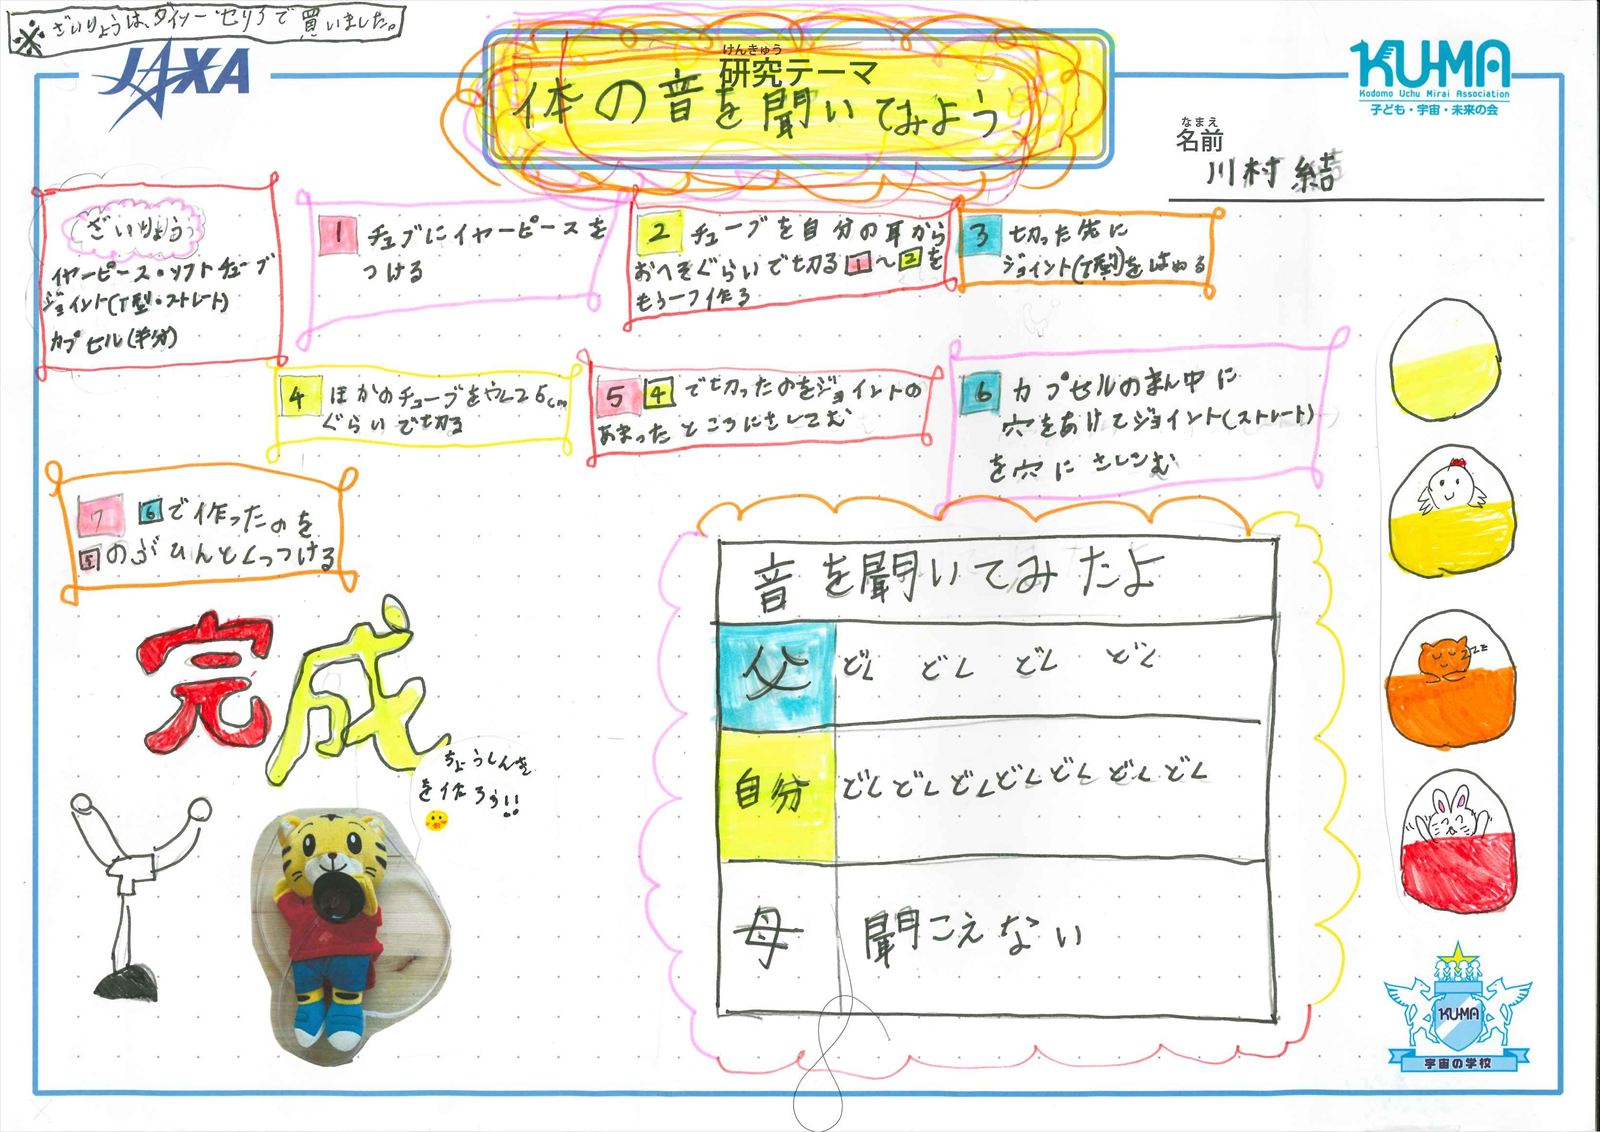 ※ざいりょうは、ダイソーセリアで買いました。
JAXA
けんきゅう
研究テーマ
体の音を聞いてみよう
KU-MA
Kodomo Uchu Mirai Association
子ども・宇宙・未来の会
なまえ
名前
川村 結
ざいりょう
イヤーピース・ソフトチューブ
ジョイント(T型・ストレート)
カプセル(半分)
1 チューブにイヤーピースを
つける
2 チューブを自分の耳から
おへそぐらいで切る 1〜2を
もう一つ作る
3 切った先に
ジョイント(T型)をはめる
4 ほかのチューブをやく25cm
ぐらいで切る
5 4で切ったのをジョイントの
あまったところにさしこむ
6 カプセルのまん中に
穴をあけてジョイント(ストレート)
を穴にさしこむ
7 6で作ったのを
5のぶひんとくっつける
完成
ちょうしんき
を作ろう!!
音を聞いてみたよ
父 どく どく どく どく
自分 どくどくどくどくどくどくどく
母 聞こえない
zzz
KU-MA
宇宙の学校